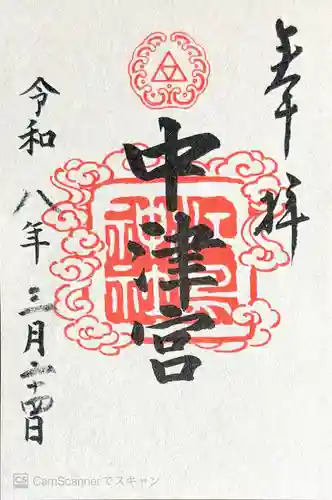 奉拝
中津宮
江島神社
令和八年三月二十四日
CS CamScannerでスキャン